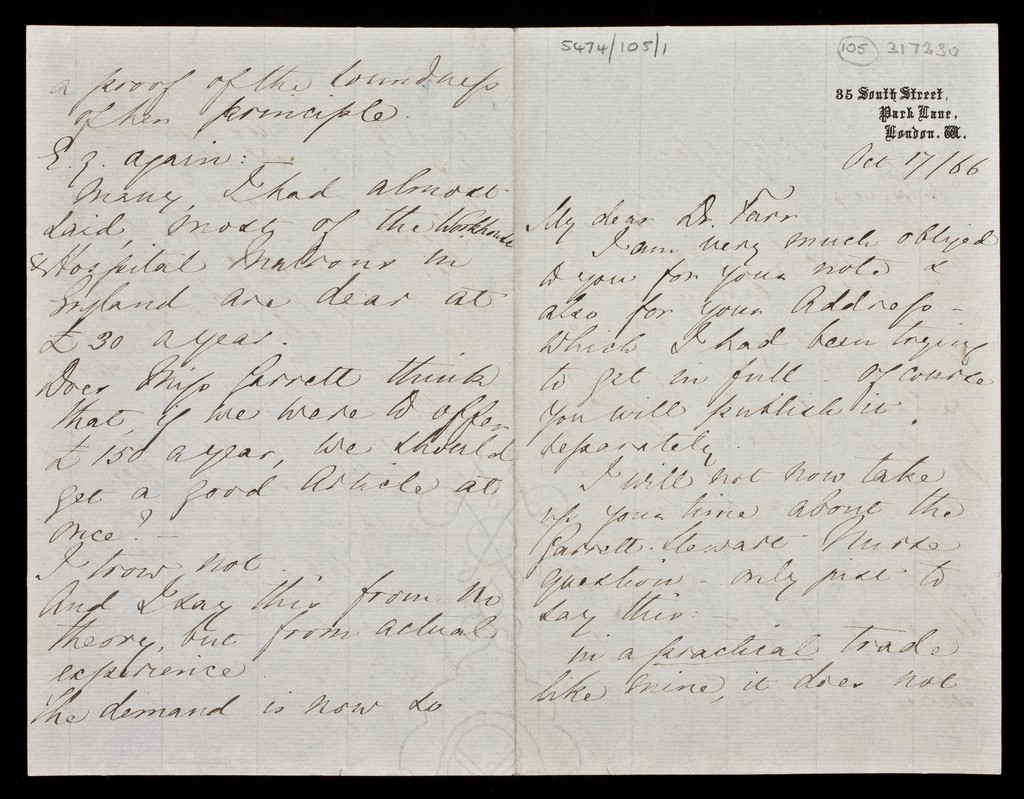 a proof of the soundness
of her principle.
E.g. again: -
Many, I had almost
said, most of the Workhouse
& Hospital Matrons in
England are dear at
£30 a year.
Does Miss Garrett think
that, if we were to offer
£150 a year, we should
get a good Article at
once? -
I trow not.
And I say this from no
theory, but from actual
experience
The demand is now so
5474/105/1
105 317230
35 South Street,
Park Lane,
London. W.
Oct 17/66
My dear Dr. Farr
I am very much obliged
to you for your note &
also for your Address -
which I had been trying
to get in full - of course
you will publish it
separately.
I will not now take
up your time about the
Garrett-Stewart Nurse
question - only just to
say this:
in a practical trade
like mine, it does not